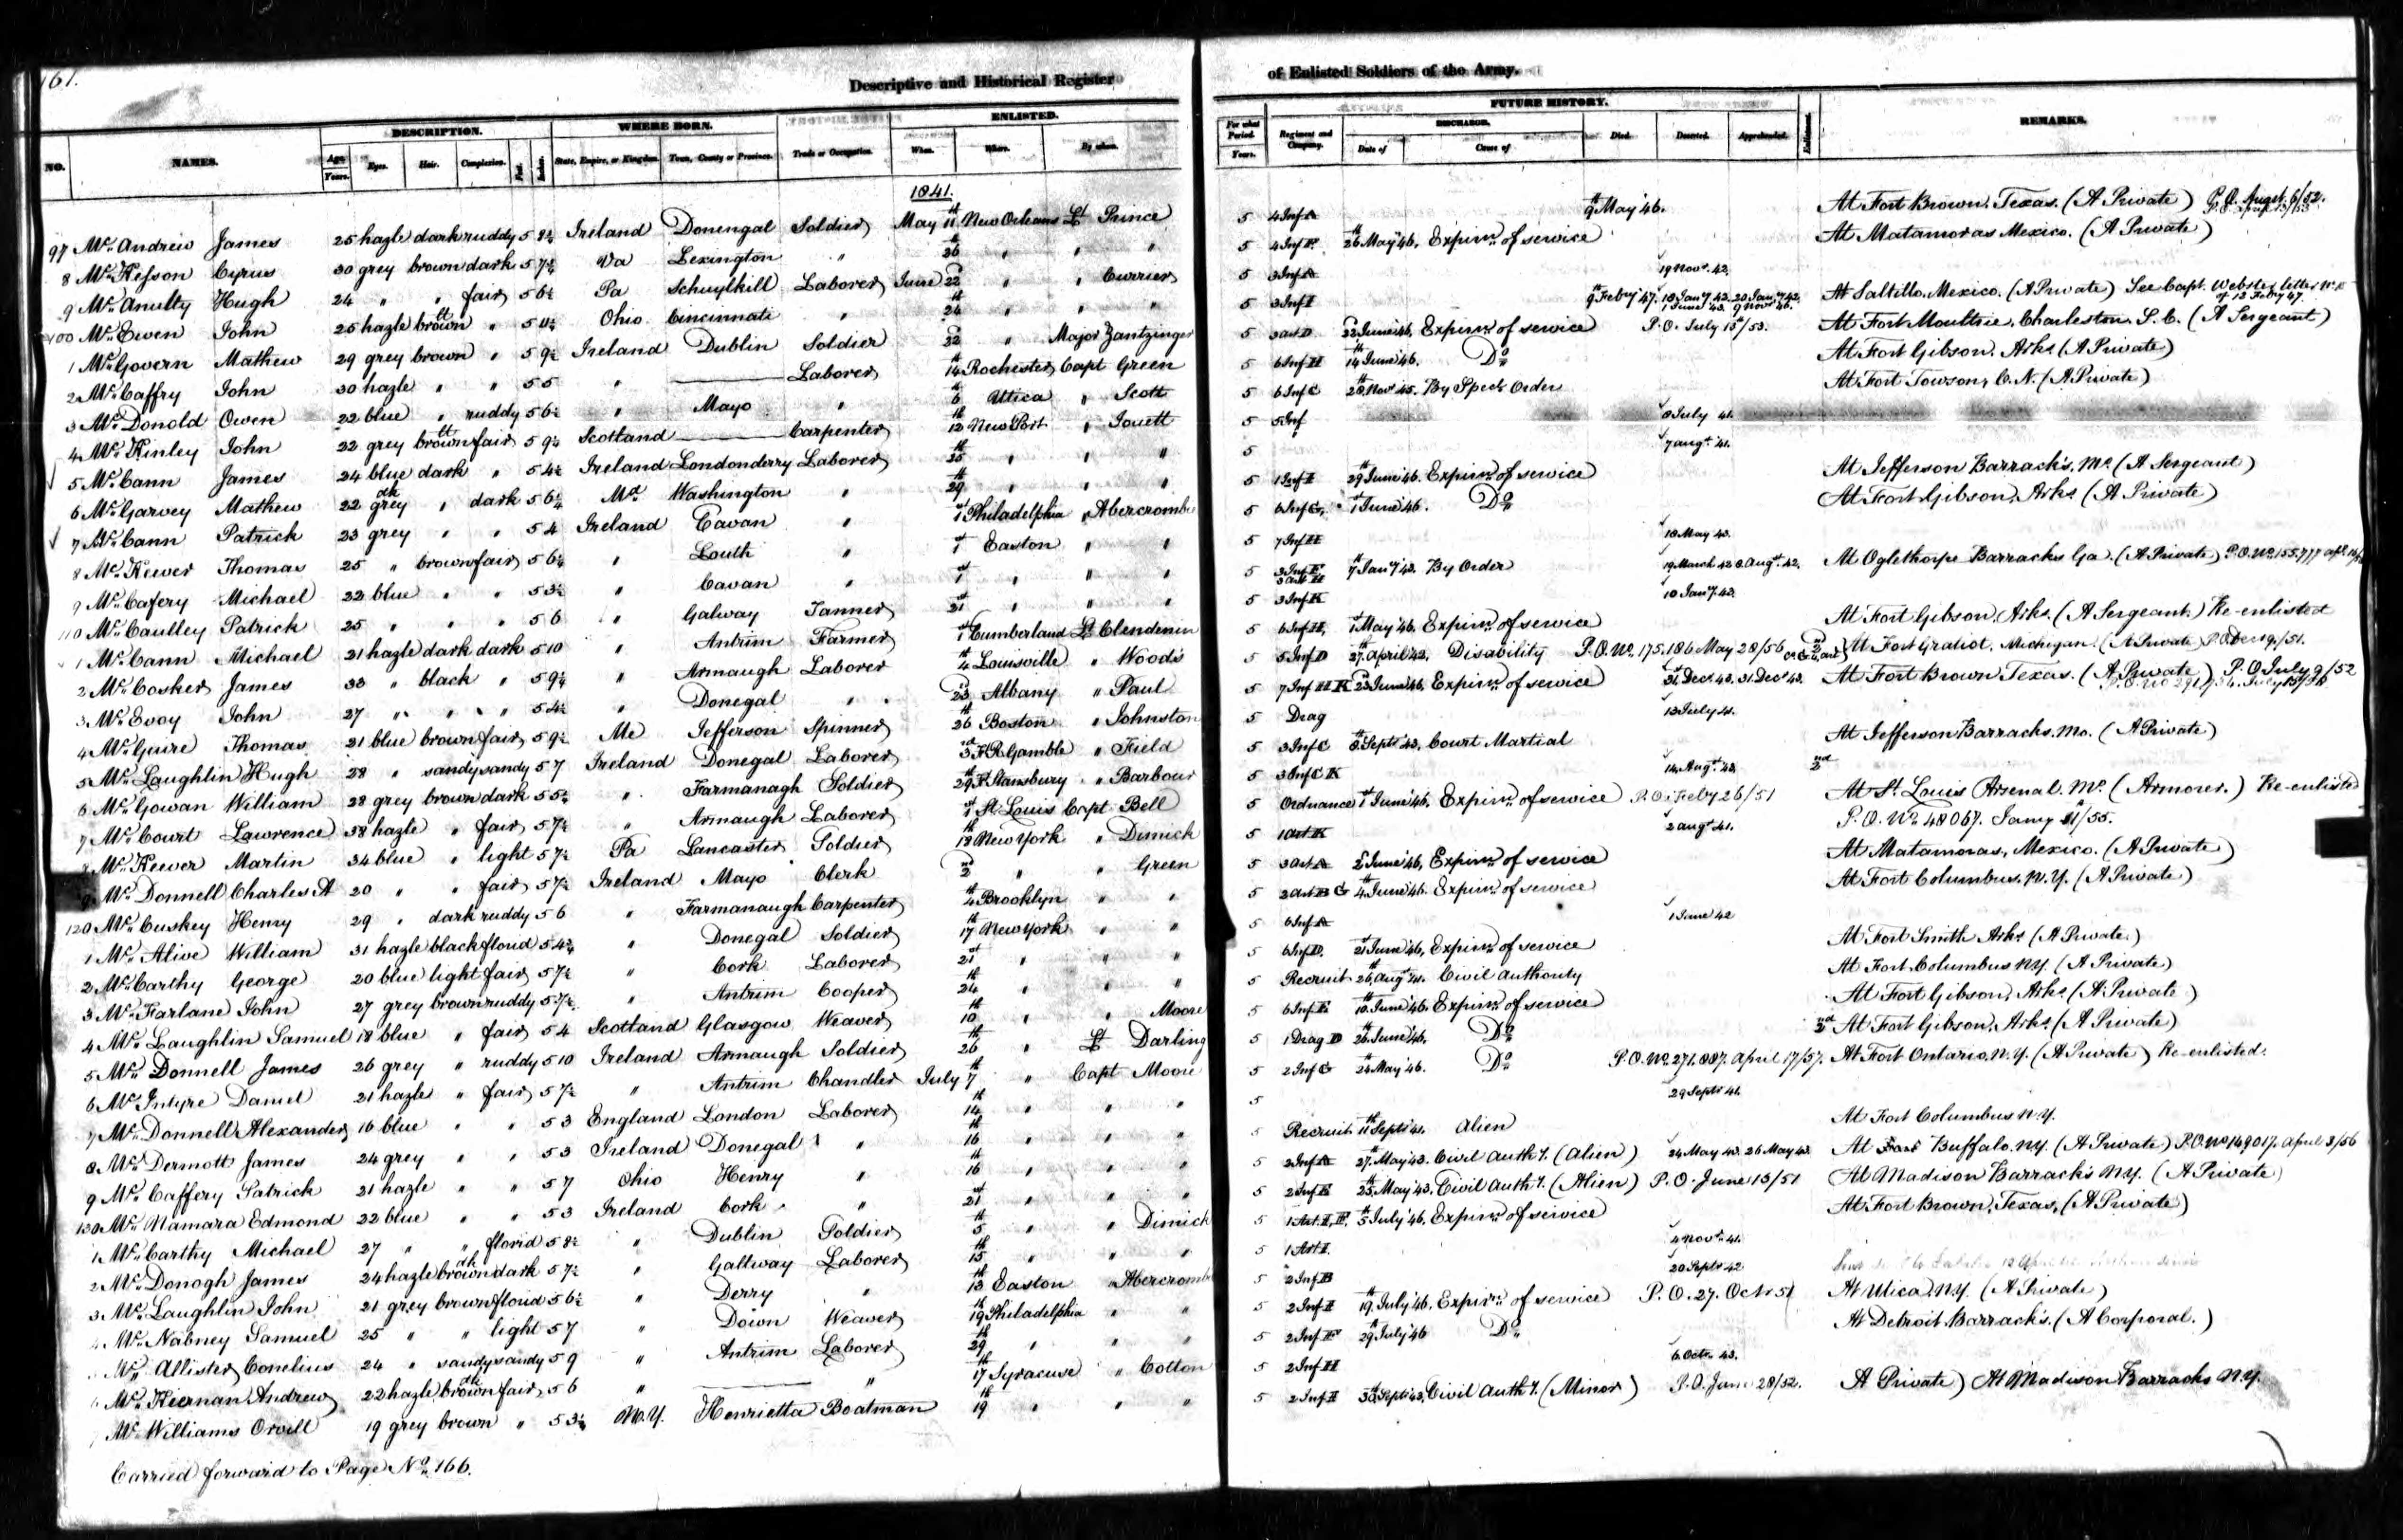 161.
Descriptive and Historical Register
DESCRIPTION. WHERE BORN. ENLISTED.
NO. NAMES. Age. Years. Eyes. Hair. Complexion. Feet. Inches. State, Empire, or Kingdom. Town, County or Province. Trade or Occupation. When. Where. By whom.
1841.
97 Mc Andrew James 25 hazle dark ruddy 5 8½ Ireland Donengal Soldier May 11th New Orleans Lt Prince
8 Mc Kesson Cyrus 30 grey brown dark 5 7½ Va Lexington " 26th " " "
9 Mc Anulty Hugh 24 " " fair 5 6½ Pa Schuylkill Laborer June 22d " " Currier
100 Mc Ewen John 25 hazle lt brown " 5 11½ Ohio Cincinnati " 24th " " "
1 Mc Govern Mathew 29 grey brown " 5 9½ Ireland Dublin Soldier 22d " Major Zantzinger
2 Mc Caffry John 30 hazle " " 5 5 " Laborer 14th Rochester Capt Green
3 Mc Donold Owen 22 blue " ruddy 5 6½ " Mayo " 6th Utica " Scott
4 Mc Kinley John 22 grey lt brown fair 5 9½ Scotland Carpenter 12th New Port " Jouett
5 Mc Cann James 24 blue dark " 5 4½ Ireland Londonderry Laborer 25th " " "
6 Mc Garvey Mathew 22 dk grey " dark 5 6¼ Md Washington " 29th " " "
7 Mc Cann Patrick 23 grey " " 5 4 Ireland Cavan " 1st Philadelphia " Abercrombie
8 Mc Kewer Thomas 25 " brown fair 5 6½ " Louth " 1st Easton " "
9 Mc Cafery Michael 22 blue " " 5 3½ " Cavan " 1st " " "
110 Mc Caulley Patrick 25 " " " 5 6 " Galway Tanner 21st " " "
1 Mc Cann Michael 21 hazle dark dark 5 10 " Antrim Farmer 1st Cumberland Lt Clendenin
2 Mc Cosker James 33 " black " 5 9¼ " Armaugh Laborer 4th Louisville " Woods
3 Mc Evoy John 27 " " " 5 4½ " Donegal " 23d Albany " Paul
4 Mc Guire Thomas 21 blue brown fair 5 9½ Me Jefferson Spinner 26th Boston " Johnston
5 Mc Laughlin Hugh 28 " sandy sandy 5 7 Ireland Donegal Laborer 3d F.R. Gamble " Field
6 Mc Gowan William 28 grey brown dark 5 5½ " Farmanagh Soldier 29th F. Stansbury " Barbour
7 Mc Court Lawrence 38 hazle " fair 5 7½ " Armaugh Laborer 1st St. Louis Capt Bell
8 Mc Kewer Martin 34 blue " light 5 7½ Pa Lancaster Soldier 18th New York " Dimick
9 Mc Donnell Charles A 20 " " fair 5 7½ Ireland Mayo Clerk 2nd " " Green
120 Mc Cuskey Henry 29 " dark ruddy 5 6 " Farmanaugh Carpenter 4th Brooklyn " "
1 Mc Alive William 31 hazle black florid 5 4¾ " Donegal Soldier 17th New York " "
2 Mc Carthy George 20 blue light fair 5 7½ " Cork Laborer 21st " " "
3 Mc Farlane John 27 grey brown ruddy 5 7½ " Antrim Cooper 24th " " "
4 Mc Laughlin Samuel 18 blue " fair 5 4 Scotland Glasgow Weaver 10th " " Moore
5 Mc Donnell James 26 grey " ruddy 5 10 Ireland Armaugh Soldier 26th " Lt Darling
6 Mc Intyre Daniel 21 hazle " fair 5 7½ " Antrim Chandler July 7th " Capt Moore
7 Mc Donnell Alexander 16 blue " " 5 3 England London Laborer 14th " " "
8 Mc Dermott James 24 grey " " 5 3 Ireland Donegal " 16th " " "
9 Mc Caffery Patrick 21 hazle " " 5 7 Ohio Henry " 16th " " "
130 Mc Namara Edmond 22 blue " " 5 3 Ireland Cork " 21st " " "
1 Mc Carthy Michael 27 " " florid 5 8½ " Dublin Soldier 5th " " Dimick
2 Mc Donogh James 24 hazle dk brown dark 5 7½ " Gallway Laborer 15th " " "
3 Mc Laughlin John 21 grey brown florid 5 6½ " Derry " 13th Easton " Abercrombie
4 Mc Nabney Samuel 25 " " light 5 7 " Down Weaver 19th Philadelphia " "
Mc Allister Conelius 24 " sandy sandy 5 9 " Antrim Laborer 29th " " "
6 Mc Kiernan Andrew 22 hazle dk brown fair 5 6 " " 17th Syracuse " Cotton
7 Mc Williams Orvill 19 grey brown " 5 3¾ N.Y. Henrietta Boatman 19th " " "
Carried forward to Page No. 166.
of Enlisted Soldiers of the Army.
FUTURE HISTORY.
For what Period. Years. Regiment and Company. DISCHARGE. Date of Cause of Died. Deserted. Apprehended. Enlistment. REMARKS.
5 4 Inf A 9th May '46. At Fort Brown, Texas. (A Private) P.O. Augst. 6/52.
5 4 Inf E 26th May '46. Expirn. of service At Matamoras Mexico. (A Private)
5 3 Inf A 19 Novr. 42.
5 3 Inf I 9th Feby '47. 18 Jany 42. 20 Jany 42. 1 June '43. 9 Novr 46. At Saltillo, Mexico. (A Private) See Capt. Webster letter of 12 Feby 47.
5 3 art D 22d June '46. Expirn. of service P.O. July 15/53. At Fort Moultrie, Charleston, S.C. (A Sergeant)
5 6 Inf H 14th June '46. Do At Fort Gibson, Arks. (A Private)
5 6 Inf C 28th Novr 45. By Specl. Order At Fort Towson, C.N. (A Private)
5 5 Inf 8 July 41.
5 7 augt. '41.
5 1 Inf I 29th June '46. Expirn. of service At Jefferson Barrack's, Mo. (A Sergeant)
5 6 Inf G, 1st June '46. Do At Fort Gibson, Arks (A Private)
5 7 Inf H 18 May 43.
5 3 Inf E 3 art H 7th Jany '43. By Order 19 March 42 8. Augt. 42. At Oglethorpe Barracks Ga. (A Private) P.O. No. 155,777
5 3 Inf K 10 Jany. 43.
5 6 Inf H, 1st May '46. Expirn. of service At Fort Gibson, Arks. (A Sergeant.) Re-enlisted
5 5 Inf D 27th April 42. Disability P.O. No. 175.186 May 28/56 At Fort Gratiot, Michigan. (A Private) P.O. Decr 19/51.
5 7 Inf H K 23d June '46. Expirn. of service 21 Decr. 43. 31. Decr 43. At Fort Brown Texas. (A Private) P.O. July 9/52
5 Drag 13 July 41.
5 3 Inf C 8th Septr 43. Court Martial At Jefferson Barracks. Mo. (A Private)
5 3 Inf C K 14. Augt. 43. 2nd
5 Ordnance 1st June '46. Expirn. of service P.O. Feby 26/51 At St. Louis Arsenal. Mo. (Armorer.) Re-enlisted
5 1 art K 2 augt. 41. P.O. No. 48067. Jany 31/55.
5 3 art A 2d June '46. Expirn. of service At Matamoras, Mexico. (A Private)
5 2 art B G 4th June '46. Expirn. of service At Fort Columbus. N.Y. (A Private)
5 6 Inf A 1 June 42
5 6 Inf D. 21st June '46. Expirn. of service At Fort Smith Arks (A Private.)
5 Recruit 26th Augt '41. Civil Authority At Fort Columbus N.Y. (A Private)
5 6 Inf E 10th June '46. Expirn. of service At Fort Gibson, Arks. (A Private.)
5 1 Drag D 26th June '46. Do 2nd At Fort Gibson, Arks. (A Private)
5 2 Inf G 24th May '46. Do P.O. No. 271.887. April 17/57. At Fort Ontario, N.Y. (A Private) Re-enlisted.
5 29 Septr 41.
5 Recruit 11th Septr 41. Alien At Fort Columbus N.Y.
5 2 Inf A 27th May '43. Civil Authy. (Alien) 24 May 43. 26 May 43. At Fort Buffalo. N.Y. (A Private) P.O. No 149017. April 3/56
5 2 Inf K 25th May '43. Civil Authy. (Alien) P.O. June 13/51 At Madison Barrack's N.Y. (A Private)
5 1 Art. I, F. 5th July '46. Expirn. of service At Fort Brown, Texas, (A Private)
5 1 Art I. 4 Novr. 41.
5 2 Inf B 20 Septr 42
5 2 Inf I 19th July '46. Expirn. of service P.O. 27. Octr 51 At Utica N.Y. (A Private)
5 2 Inf F 29th July '46 Do At Detroit Barrack's. (A Corporal.)
5 2 Inf H 6. Octr. 43.
5 2 Inf I 30th Septr 43. Civil Authy. (Minor) P.O. June 28/52. A Private) At Madison Barracks N.Y.